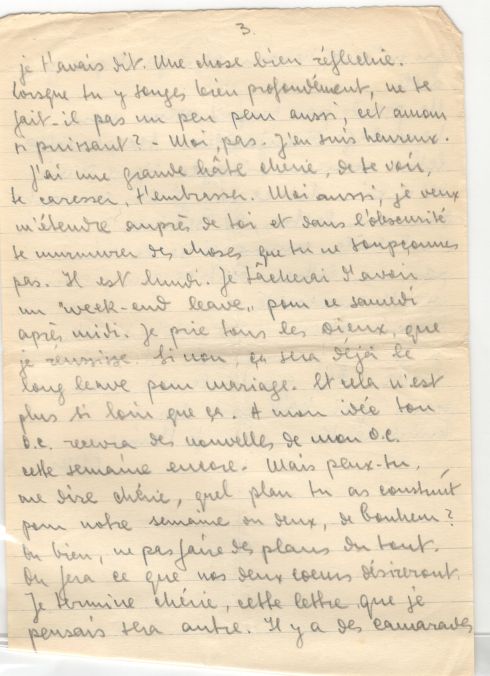 3.
je t'avais dit. Une chose bien réflechie.
Lorsque tu y songes bien profondément, ne te
fait-il pas un peu peur aussi, cet amour
si puissant? - Moi, pas. J'en suis heureux.
J'ai une grande hâte chérie, de te voir,
te caresser, t'embrasser. Moi aussi, je veux
m'étendre auprès de toi et dans l'obscurité
te murmurer des choses que tu ne soupçonnes
pas. Il est lundi. Je tâcherai d'avoir
un "week-end leave" pour ce samedi
après midi. Je prie tous les Dieux, que
je reussisse. Si non, ça sera déjà le
long leave pour mariage. Et cela n'est
plus si loin que ça. A mon idée ton
O.C. recevra des nouvelles de mon O.C.
cette semaine encore. Mais peux-tu,
me dire chérie, quel plan tu as construit
pour notre semaine ou deux, de bonheur?
Ou bien, ne pas faire des plans du tout.
On fera ce que nos deux coeurs désireront.
Je termine chérie, cette lettre que je
pensais sera autre. Il y a des camarades